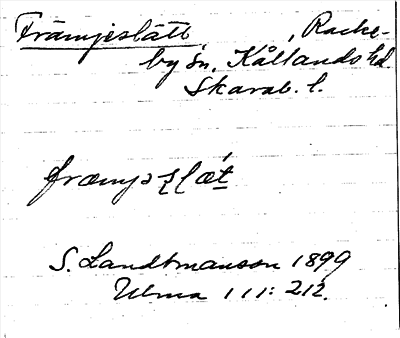 Främjeslätt, Racke-
by sn, Kållands hd.
Skarab. l.
S. Landtmanson 1899
Ulma 111:212.